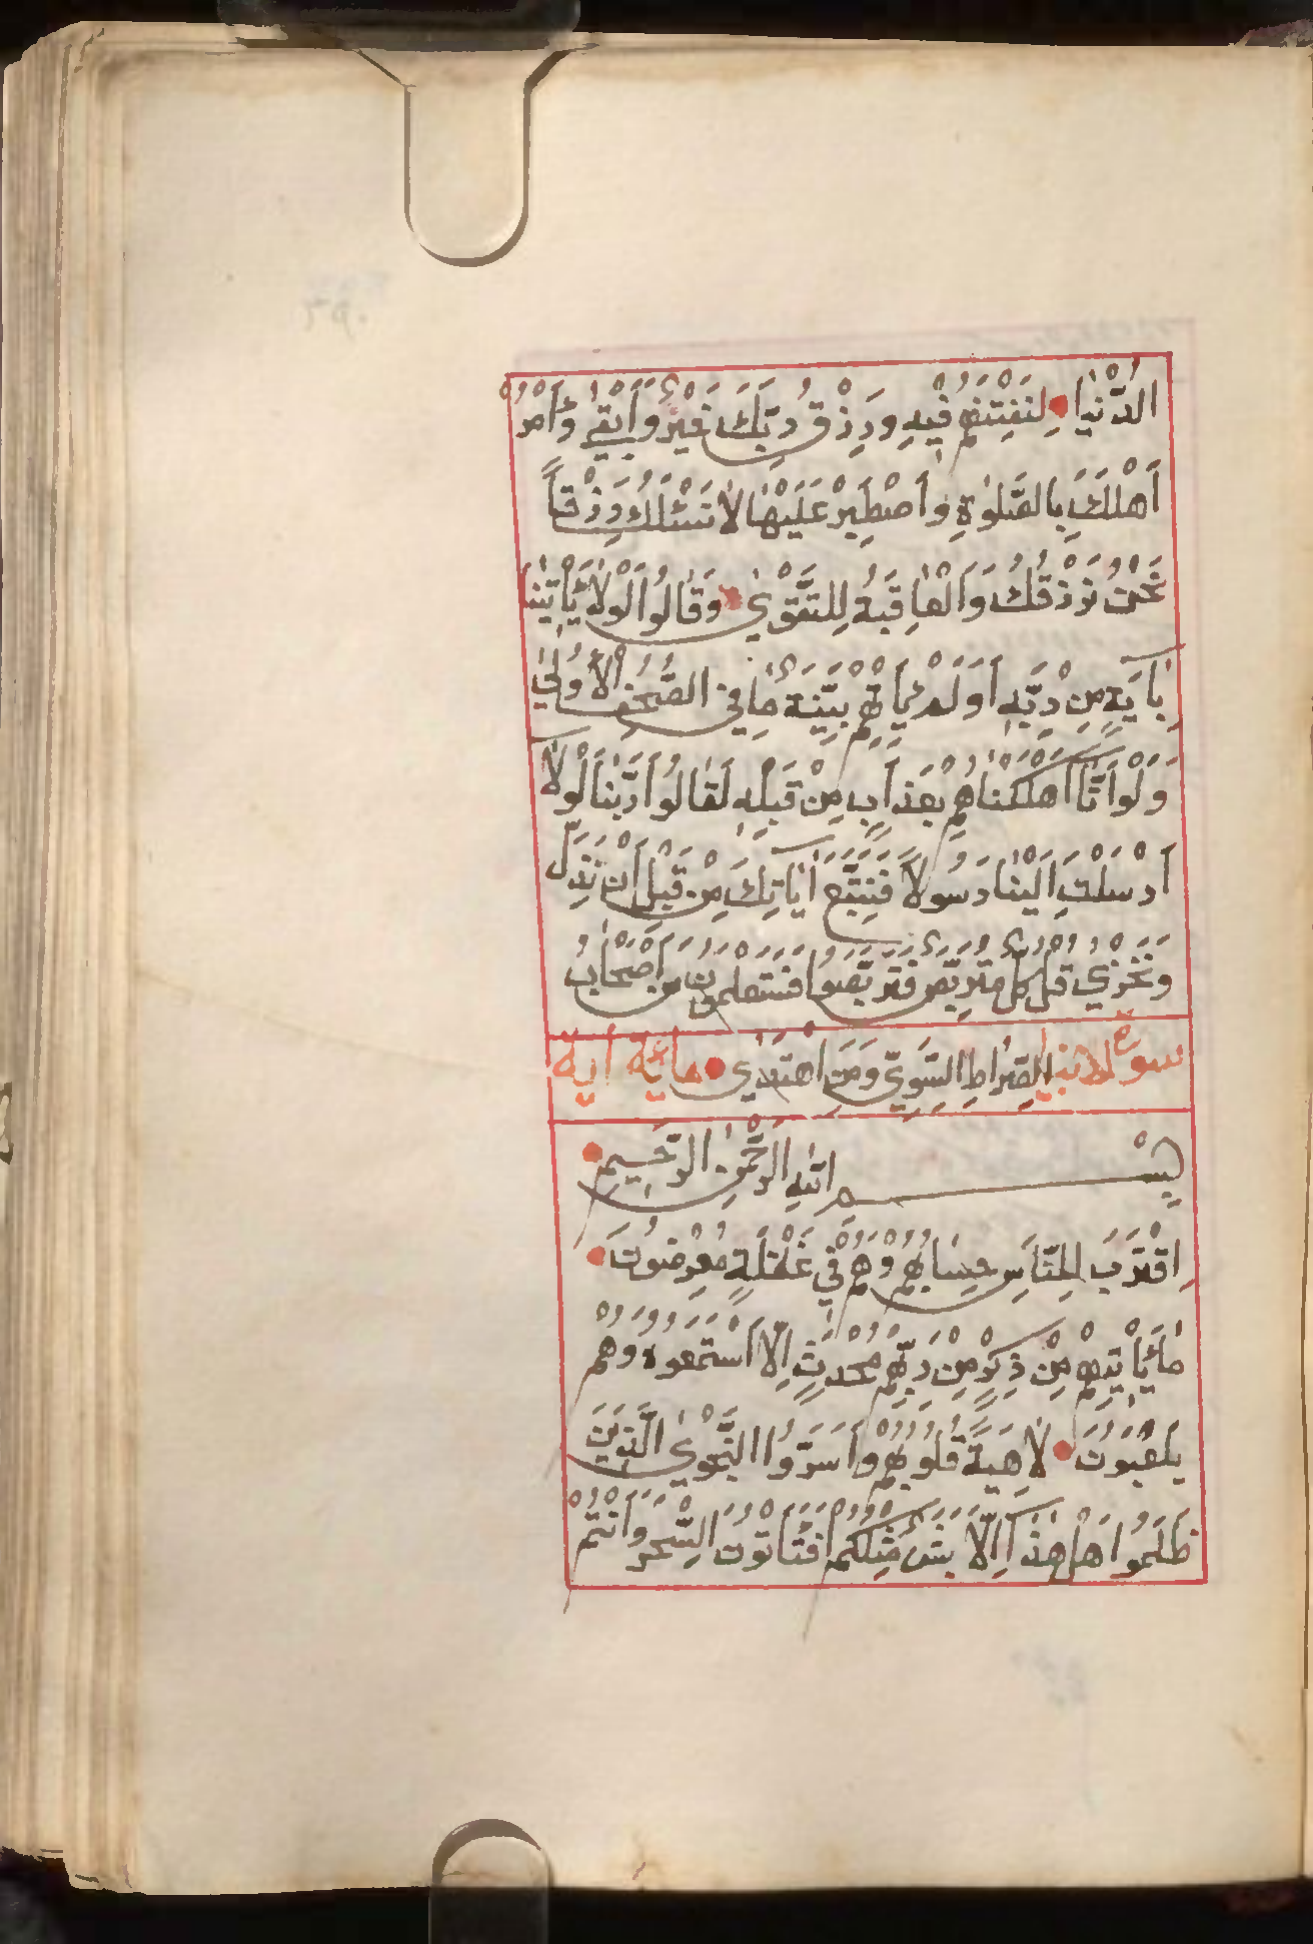 الدُّنْيَا لِنَفْتِنَهُمْ فِيهِ وَرِزْقُ رَبِّكَ خَيْرٌ وَأَبْقَى وَأْمُرْ
أَهْلَكَ بِالصَّلٰوةِ وَاصْطَبِرْ عَلَيْهَا لَا نَسْئَلُكَ رِزْقًا
نَحْنُ نَرْزُقُكَ وَالْعَاقِبَةُ لِلتَّقْوَى وَقَالُوا لَوْلَا يَأْتِينَا
بِآيَةٍ مِنْ رَبِّهِ أَوَلَمْ تَأْتِهِمْ بَيِّنَةُ مَا فِي الصُّحُفِ الْأُولَى
وَلَوْ أَنَّا أَهْلَكْنَاهُمْ بِعَذَابٍ مِنْ قَبْلِهِ لَقَالُوا رَبَّنَا لَوْلَا
أَرْسَلْتَ إِلَيْنَا رَسُولًا فَنَتَّبِعَ آيَاتِكَ مِنْ قَبْلِ أَنْ نَذِلَّ
وَنَخْزَى قُلْ كُلٌّ مُتَرَبِّصٌ فَتَرَبَّصُوا فَسَتَعْلَمُونَ مَنْ أَصْحَابُ
سورة الانبيا الصِّرَاطِ السَّوِيِّ وَمَنِ اهْتَدَى مائة آية
بِسْمِ اللهِ الرَّحْمٰنِ الرَّحِيمِ
اِقْتَرَبَ لِلنَّاسِ حِسَابُهُمْ وَهُمْ فِي غَفْلَةٍ مُعْرِضُونَ
مَا يَأْتِيهِمْ مِنْ ذِكْرٍ مِنْ رَبِّهِمْ مُحْدَثٍ إِلَّا اسْتَمَعُوهُ وَهُمْ
يَلْعَبُونَ لَاهِيَةً قُلُوبُهُمْ وَأَسَرُّوا النَّجْوَى الَّذِينَ
ظَلَمُوا هَلْ هٰذَا إِلَّا بَشَرٌ مِثْلُكُمْ أَفَتَأْتُونَ السِّحْرَ وَأَنْتُمْ